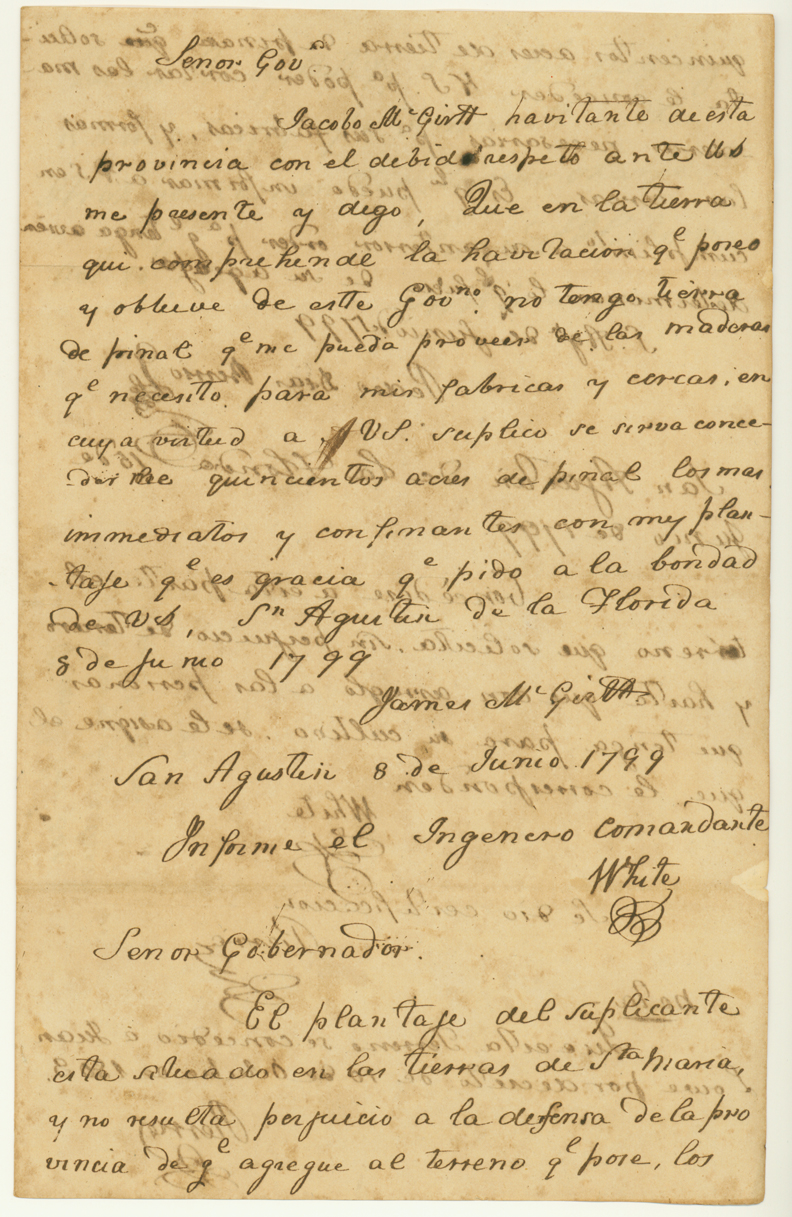 Senor Gov.ʳ
Jacobo Mᶜ Girtt havitante de esta
provincia con el debido respeto ante US
me presente y digo, Que en la tierra
qui comprehende la havitacion qᵉ poseo
y obtuve de este Govⁿᵒ. no tengo tierra
de pinal qᵉ me pueda proveer de las maderas
qᵉ necesito para mis fabricas y cercas, en
cuya virtud a VS. suplico se sirva conce-
dir lee quincientos acres de pinal los mas
immediatos y confinantes con my plan-
taje qᵉ es gracia qᵉ pido a la bondad
de VS, Sⁿ Agustin de la Florida
8 de Junio 1799
James Mᶜ Girtt
San Agustin 8 de Junio 1799
Informe el Ingenero Comandante
White
Senor Gobernador.
El plantaje del suplicante
esta situado en las tierras de Sᵗᵃ Maria,
y no resulta perjuicio a la defensa de la pro
vincia de qᵉ agregue al terreno qᵉ pose, los